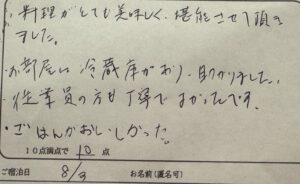 ・料理がとても美味しく、堪能させて頂き
ました。
・お部屋に冷蔵庫があり、助かりました。
・従業員の方も丁寧でよかったです。
・ごはんがおいしかった。
10点満点で 10 点
ご宿泊日 8/3 お名前(匿名可)